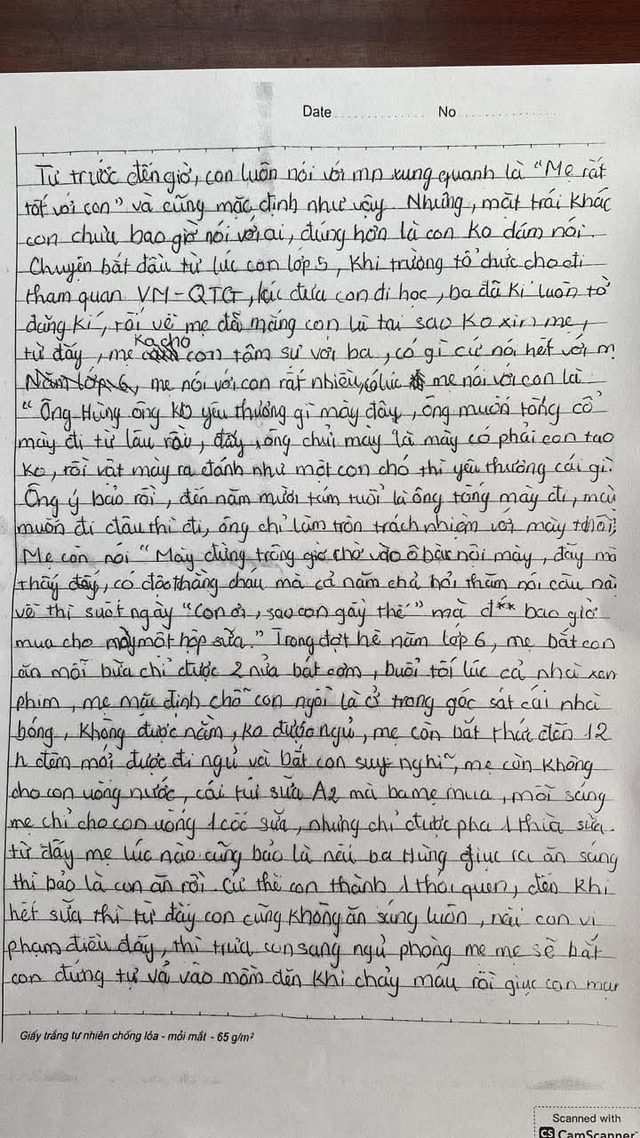 Date No
Từ trước đến giờ, con luôn nói với mn xung quanh là "Mẹ rất
tốt với con" và cũng mặc định như vậy. Nhưng, mặt trái khác
con chưa bao giờ nói với ai, đúng hơn là con ko dám nói.
Chuyện bắt đầu từ lúc con lớp 5, khi trường tổ chức cho đi
tham quan VM-QTG, lúc đưa con đi học, ba đã kí luôn tờ
đăng kí, rồi về mẹ đã mắng con là tại sao ko xin mẹ,
từ đấy, mẹ ko cho con tâm sự với ba, có gì cứ nói hết với m
Năm lớp 6, mẹ nói với con rất nhiều, có lúc mẹ nói với con là
"Ông Hùng ông ko yêu thương gì mày đâu, ông muốn tống cổ
mày đi từ lâu rồi, đấy, ông chửi mày là mày có phải con tao
ko, rồi vật mày ra đánh như một con chó thì yêu thương cái gì.
Ông ý bảo rồi, đến năm mười tám tuổi là ông tống mày đi, mày
muốn đi đâu thì đi, ông chỉ làm tròn trách nhiệm với mày thôi.
Mẹ còn nói "Mày đừng trông giờ chờ vào ô bà nội mày, đấy mà
thấy đấy, có đợt thằng cháu mà cả năm chả hỏi thăm nói câu nào
về thì suốt ngày "con ơi, sao con gầy thế" mà đ** bao giờ
mua cho mày một hộp sữa." Trong đợt hè năm lớp 6, mẹ bắt con
ăn mỗi bữa chỉ được 2 nửa bát cơm, buổi tối lúc cả nhà xem
phim, mẹ mặc định chỗ con ngồi là ở trong góc sát cái nhà
bóng, không được nằm, ko được ngủ, mẹ còn bắt thức đến 12
h đêm mới được đi ngủ và bắt con suy nghĩ, mẹ còn không
cho con uống nước, cái túi sữa A2 mà ba mẹ mua, mỗi sáng
mẹ chỉ cho con uống 1 cốc sữa, nhưng chỉ được pha 1 thìa sữa.
từ đấy mẹ lúc nào cũng bảo là nếu ba Hùng giục ra ăn sáng
thì bảo là con ăn rồi. Cứ thế con thành 1 thói quen, đến khi
hết sữa thì từ đấy con cũng không ăn sáng luôn, nếu con vi
phạm điều đấy, thì trưa con sang ngủ phòng mẹ mẹ sẽ bắt
con đứng tự vả vào mồm đến khi chảy máu rồi giục con
Giấy trắng tự nhiên chống lóa - mỏi mắt - 65 g/m²
Scanned with
CS CamScanner